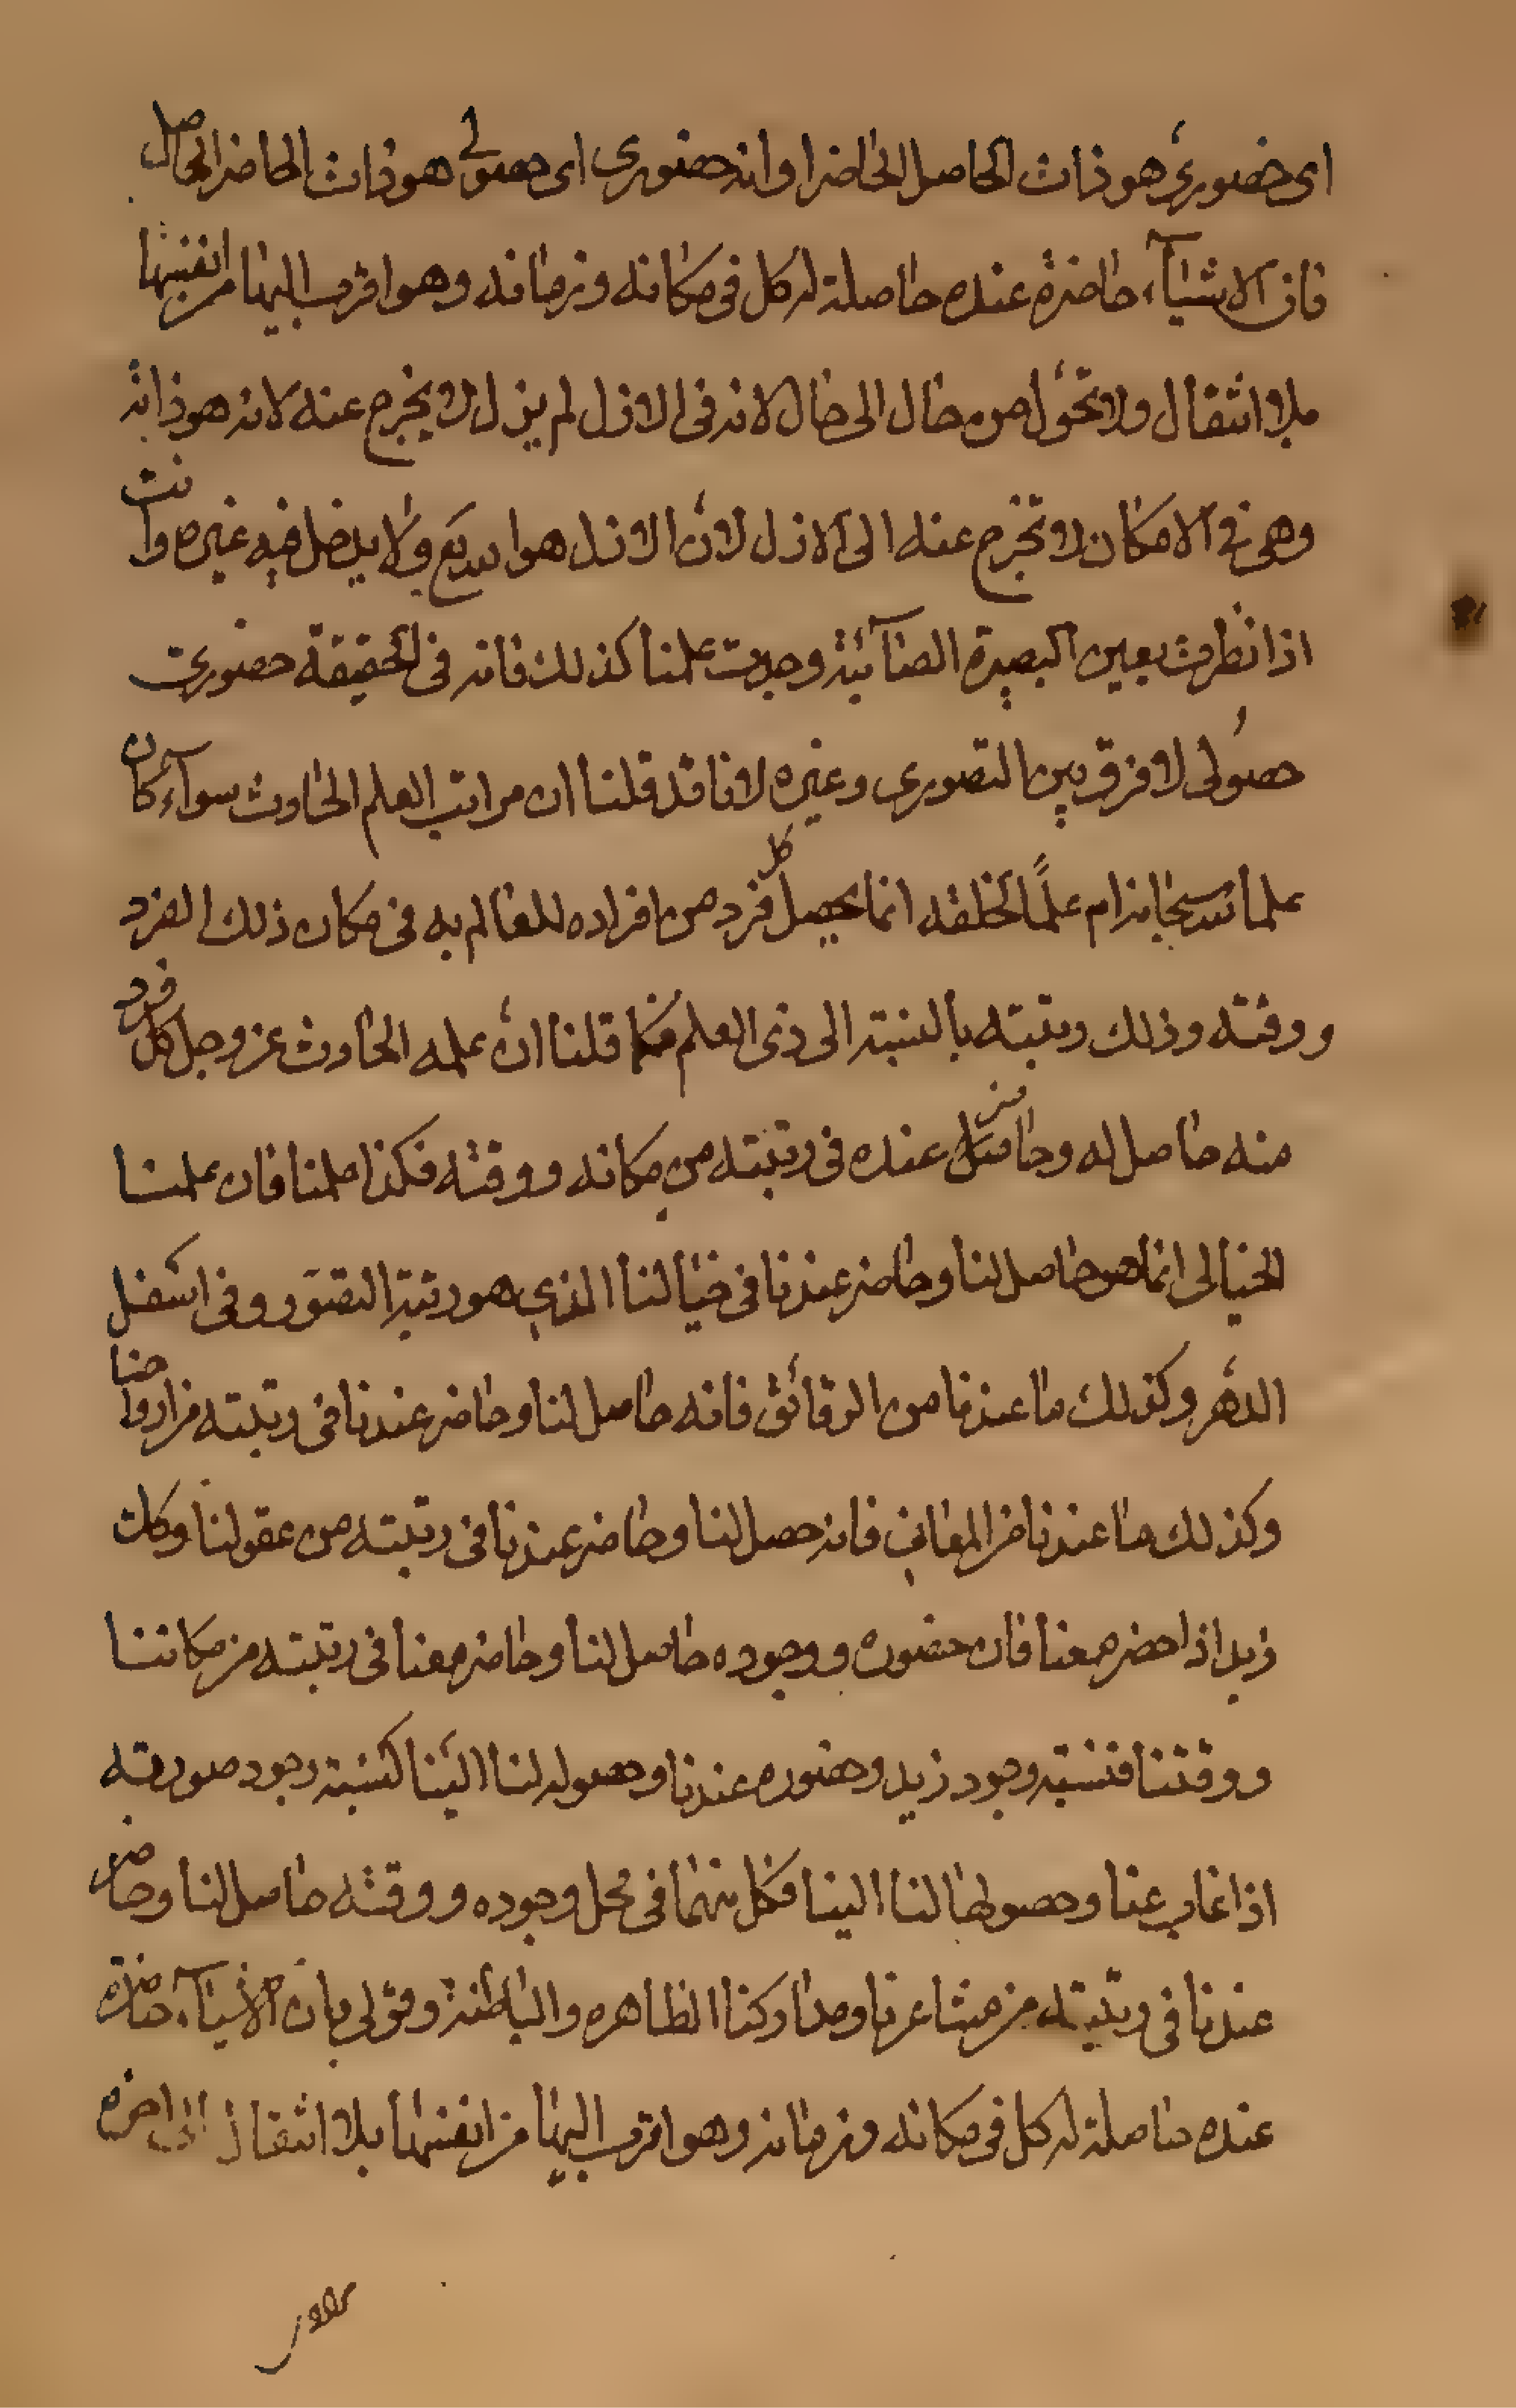 اى حضورىّ هو ذات الحاصل الحاضر او انه حضورى اى حصولى هو ذات الحاضر الحاصل
فان الاشيآء حاضرة عنده حاصلة له كل فى مكانه و زمانه وهو اقرب اليها من انفسها
بلا انتقال ولا تحوّل من حال الى حال لانه فى الازل لم يزل لا يخرج عنه لانه هو ذاته
وهى فى الامكان لا تخرج عنه الى الازل لانّ الازل هو الله تع ولا يدخل فيه غيره وانت
اذا نظرت بعين البصيرة الصآئبة وجدت علمنا كذلك فانه فى الحقيقة حضورى
حصُولى لا فرق بين التصورى وغيره لانا قد قلنا ان مراتب العلم الحادث سوآء كان
علما لله سبحانه ام علمًا لخلقه انما يحصل كل فرد من افراده للعالم به فى مكان ذلك الفرد
و وقته وذلك رتبته بالنسبة الى ذى العلم فكما قلنا انّ علمه الحادث عز وجل كل فرد
منه حاصل له وحاضر عنده فى رتبته من مكانه و وقته فكذا علمنا فان علمنا
الخيالى انما هو حاصل لنا وحاضر عندنا فى خيالنا الذى هو رتبة التصوّر وفى اسفل
الدّهر وكذلك ما عندنا من الرقائق فانه حاصل لنا وحاضر عندنا فى رتبته من ارواحنا
وكذلك ما عندنا من المعانى فانه حصل لنا وحاضر عندنا فى رتبته من عقولنا وكك
زيد اذا حضر معنا فان حضوره و وجوده حاصل لنا وحاضر معنا فى رتبته من مكاننا
و وقتنا فنسبة وجود زيد وحضوره عندنا وحصوله لنا الينا كنسبة وجود صورته
اذا غاب عنا وحصولها لنا الينا فكل منهما فى محل وجوده و وقته حاصل لنا وحاضر
عندنا فى رتبته من مشاعرنا ومداركنا الظاهره والباطنة وقولى بان الاشيآء حاضرة
عنده حاصلة له كل فى مكانه وزمانه وهو اقرب اليها من انفسها بلا انتقال الى اخره